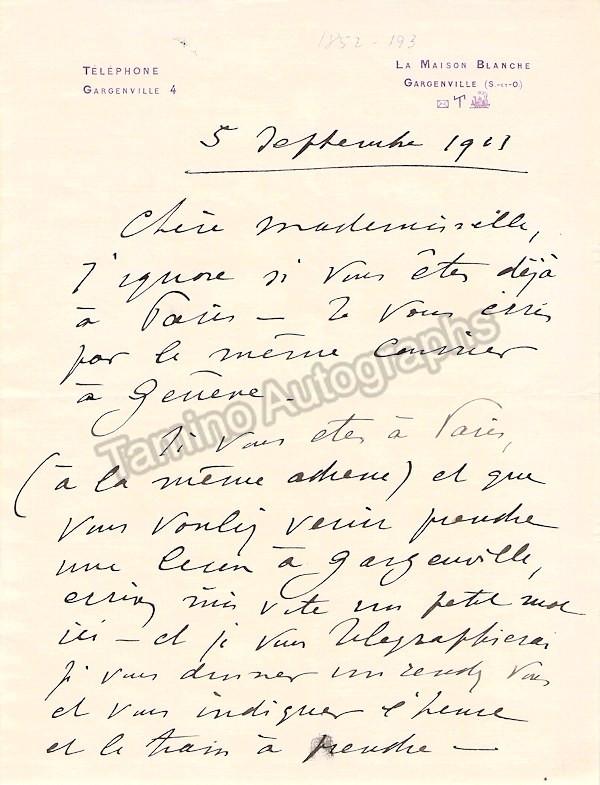 1852 - 193
TÉLÉPHONE
GARGENVILLE 4
LA MAISON BLANCHE
GARGENVILLE (S.-ET-O.)
5 Septembre 1913
Chère mademoiselle,
J'ignore si vous êtes déjà
à Paris — Je vous écris
par le même courrier
à Genève.
Si vous êtes à Paris,
(à la même adresse) et que
vous vouliez venir prendre
une leçon à Gargenville,
écrivez moi vite un petit mot
ici — et je vous télégraphierai
vous donner un rendez vous
et vous indiquer l'heure
et le train à prendre —
Tamino Autographs